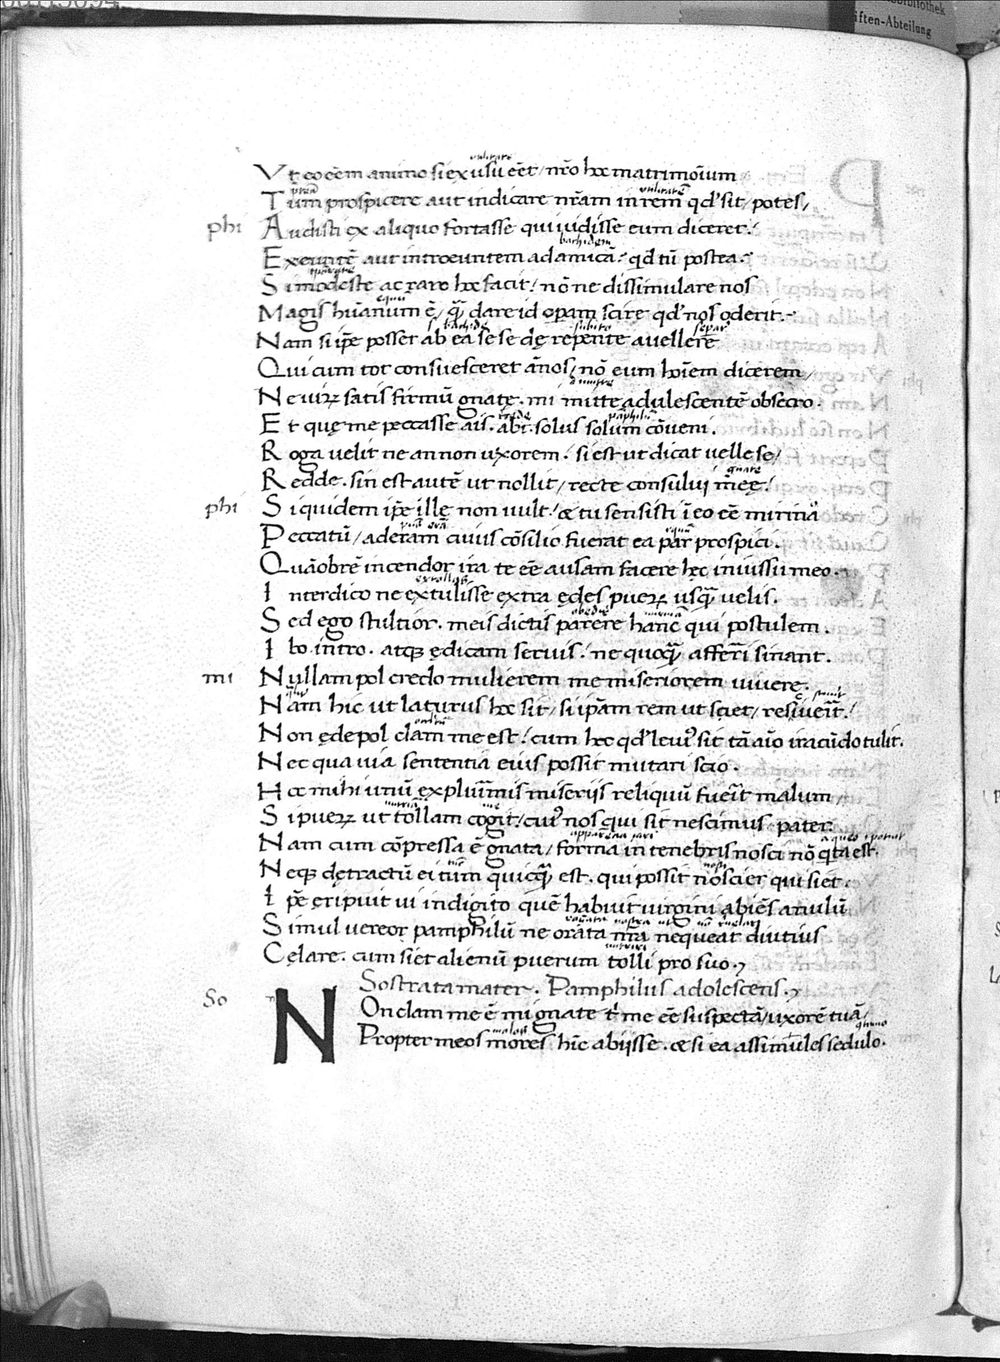 Vt eo eēm animo si ex usu eēt / nr̄o hoc matrimoīum
Tūm prospicere aut indicare nr̄am in rem qd' sit / potes /
phi Audisti ex aliquo fortasse qui uidisse eum diceret /
bachidem
Exeuntē aut introeuntem ad amicā : qd tū postea :
Si modeste ac raro hoc facit / nōne dissimulare nos
equū
Magis hūanum ē / q̄ dare id opam scire qd' nos oderit :
bachide subito separ
Nam si ip̄e posset ab ea sese dę repente auellere
Qui cum tot consuesceret ānos / nō eum hoīem dicerem /
Ne uirꝝ satis firmū gnatę . mi mitte adulescentē obsecro .
crede pāphilū
Et quę me peccasse ais . abi solus solum cōueni .
Roga uelit ne an non uxorem / si est ut dicat uelle se /
gnate
Redde . sin est autē ut nollit / recte consului męę /
phi Si quidem ip̄e ille non uult / & tu sensisti ī eo eē mirinā
Peccatū / aderam cuius cōsilio fuerat ea par prospici .
Quāobrē incendor ira te eē ausam facere hęc iniussu meo .
Interdico ne extulisse extra ędes puerꝝ usq̄ uelis .
Sed ego stultior . meis dictis parere hanc qui postulem .
Ibo intro . atqꝫ ędicam seruis / ne quoq̄ afferri sinant .
mi Nullam pol credo mulierem me miseriorem uiuere .
Nam hic ut laturus hoc sit / si ip̄am rem ut sciet / resciuerit /
Non ędepol clam me est / cum hoc qd' leui' sit tā aīo iracūdo tulit .
Nec qua uia sententia eius possit mutari scio .
Hoc mihi unū ex plurīmis miserijs reliquū fuerit malum
Si puerꝝ ut tollam cogit / cui' nos qui sit nescimus pater .
Nam cum cōpressa ē gnata / forma in tenebris nosci nō q̄ta est .
Neqꝫ dętractū ei tūm quicq̄ est . qui possit nosci er qui siet .
Ip̄e eripuit ui in digito quē habuit uirgini abiēs anulū
Simul uereor pamphilū ne orāta nr̄a nequeat diutius
Cęlare . cum siet alienū puerum tolli pro suo .
Sostrata mater . Pamphilus adolescens .
So Non clam me ē mi gnate t' me eē suspectā / uxorē tuā /
Propter meos mores hīc abijsse . & si ea assimules sedulo .